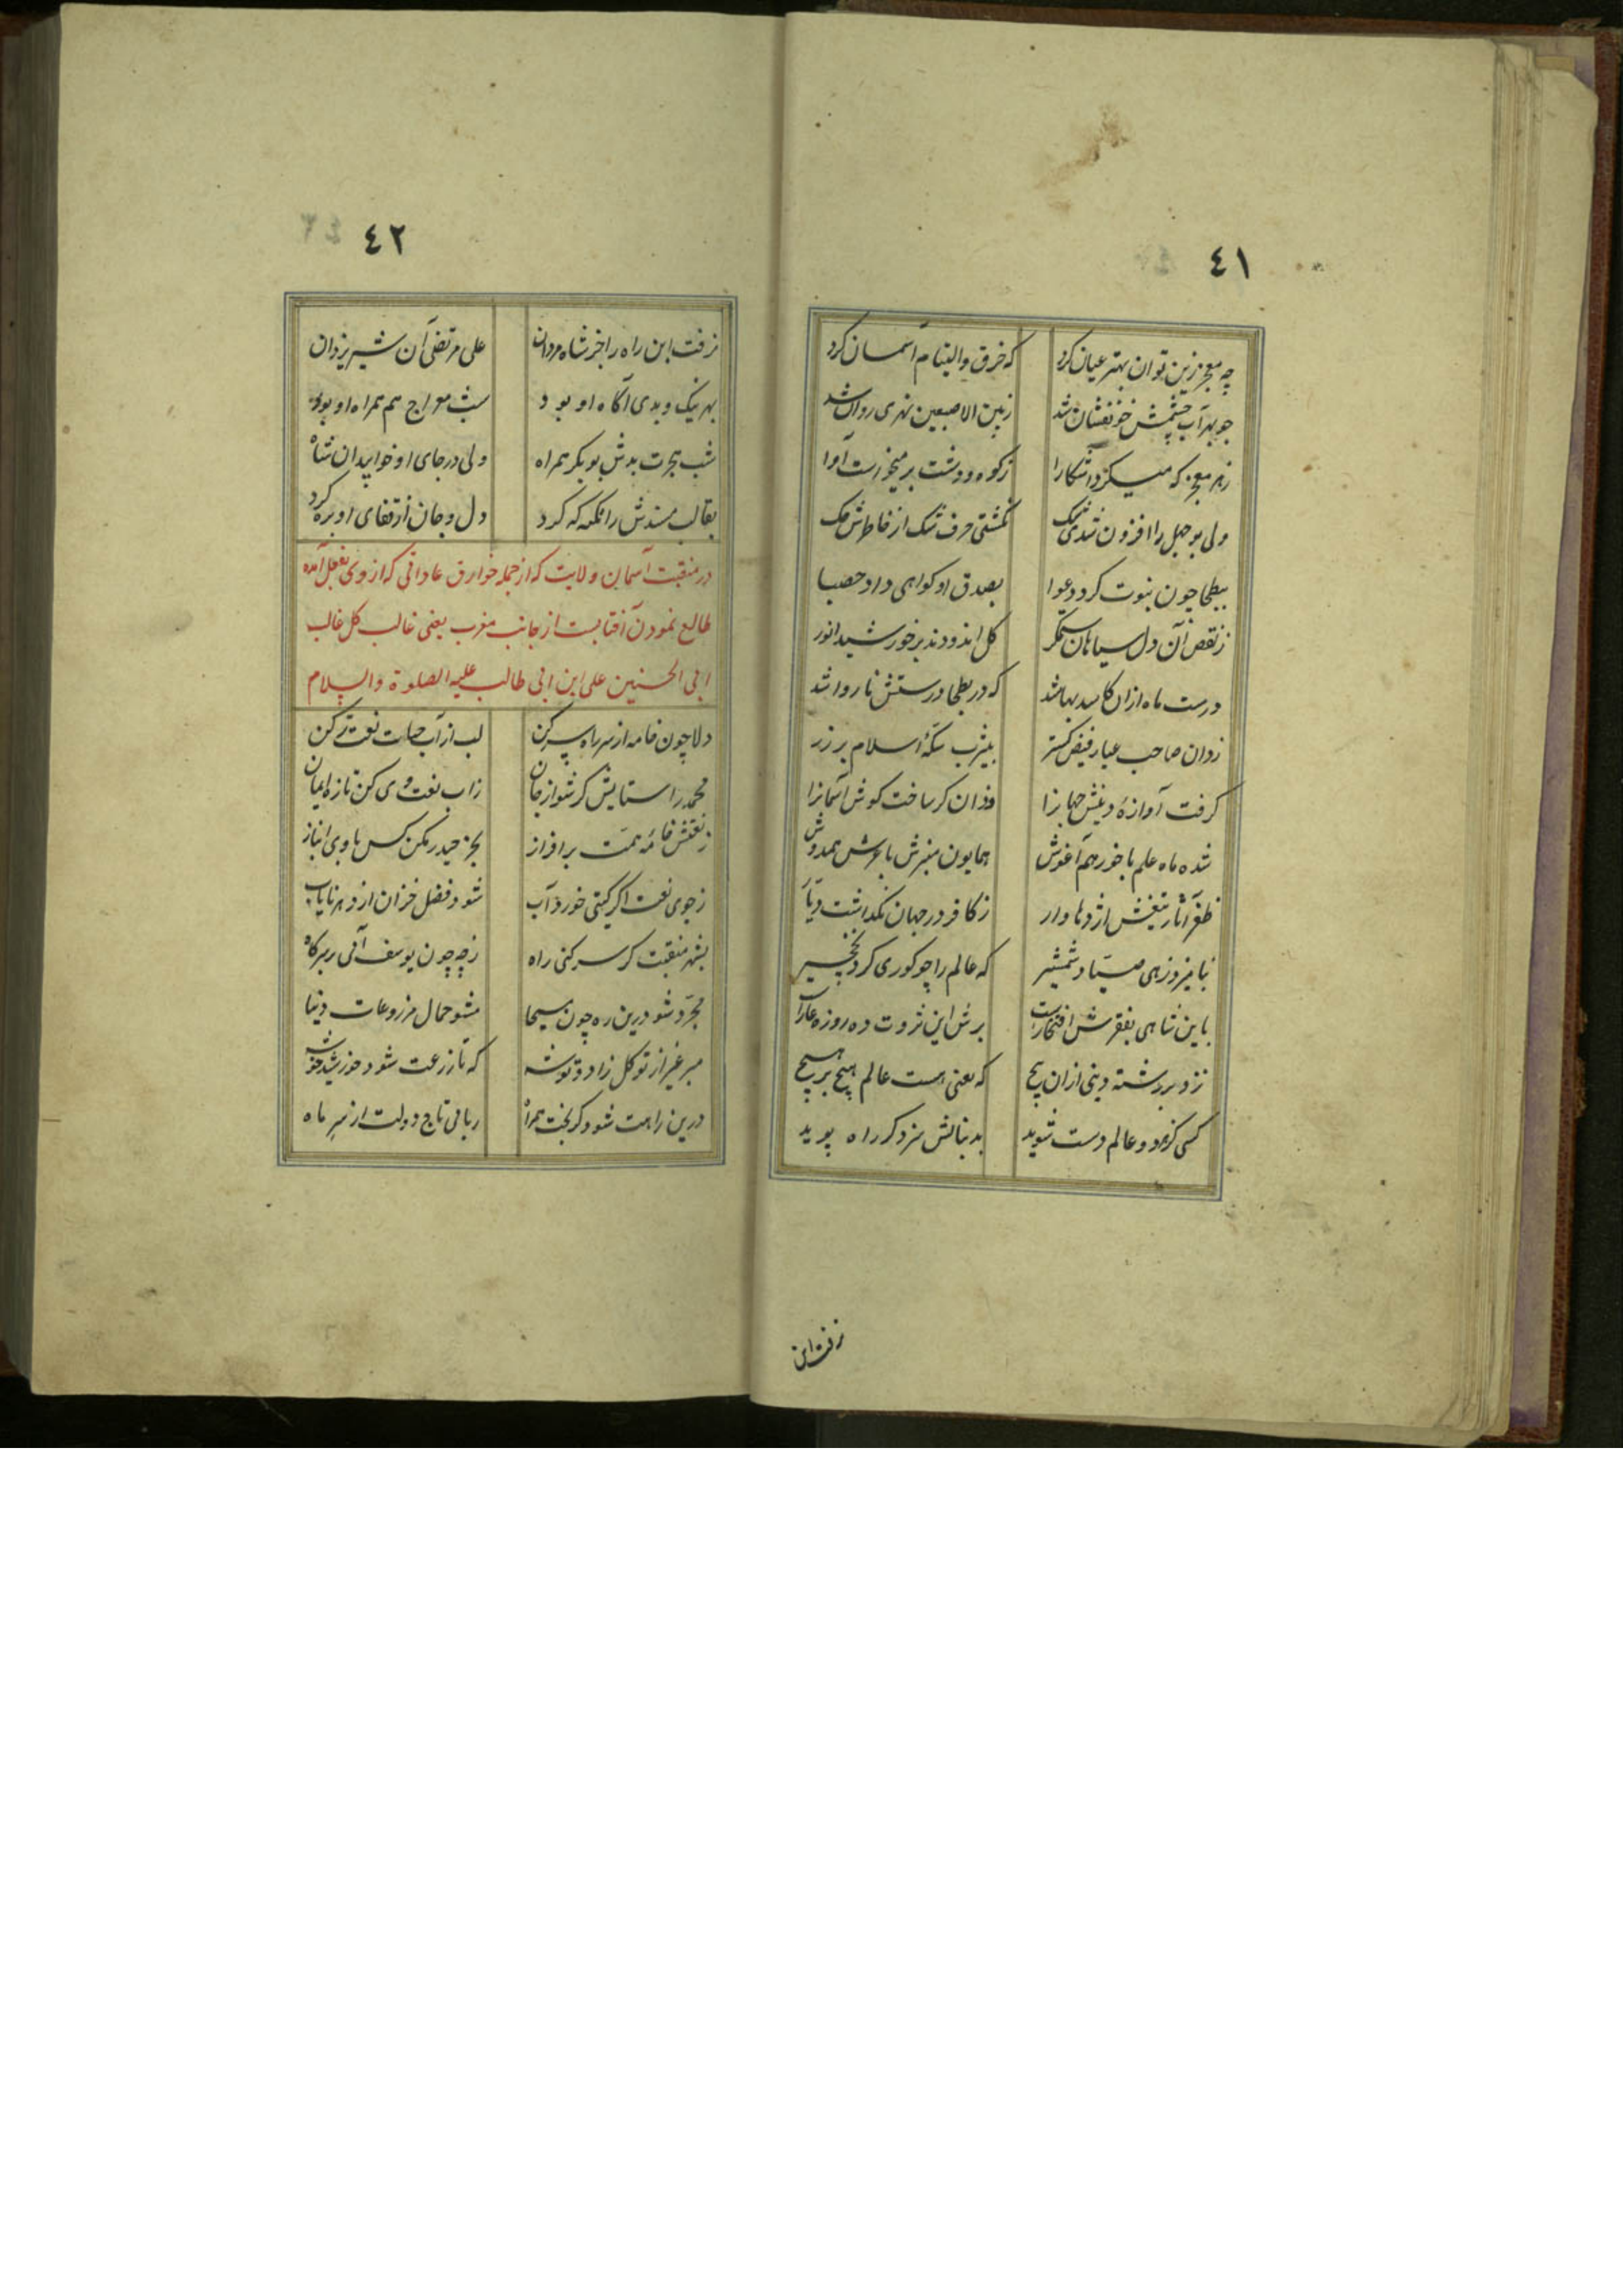 ٤١
چه معجز زین توان بهتر عیان کرد که خرق والتیام آسمان کرد
چو بهر آب چشمش خونفشان شد ز بین الاصبعین نهری روان شد
ز هر معجز که میکرد آشکارا ز کوه و دشت برمیخاست آوا
ولی بوجهل را افزون شدی شک نگشتی حرف شک از خاطرش حک
ببطحا چون نبوت کرد دعوا بصدق او کواهی داد حصبا
ز نقص آن دل سیاهان ستمگر کل اندودند بر خورشید انور
درست ماه ازان کاسد بها شد که در بطحا درستش ناروا شد
زد آن صاحب عیار فیض کستر بیثرب سکهٔ اسلام بر زر
کرفت آوازهٔ دینش جهانرا وزان کر ساخت کوش آسمانرا
شده ماه علم با خور هم آغوش همایون منبرش با عرش همدوش
ظفر آثار تیغش اژدها وار ز کافر در جهان نکذاشت دیار
نیامیزد زهی صیاد شمشیر که عالم را چو کوری کرد نخچیر
باین شاهی بفقرش افتخارست برش این ثروت ده روزه عارست
نزد بر رشته دینی ازان پیچ که یعنی هست عالم هیچ بر هیچ
کسی کز هر دو عالم دست شوید بدنبالش سزد کر راه پوید
نرفت این
٤٢
نرفت این راه را جز شاه مردان علی مرتضی آن شیر یزدان
بهر نیک و بدی آکاه او بود شب معراج هم همراه او بود
شب هجرت بدش بوبکر همراه ولی در جای او خوابید آن شاه
بقالب مسندش را تکیه که کرد دل و جان از قفای او بره کرد
در منقبت آسمان ولایت که از جمله خوارق عاداتی که از وی بفعل آمده
طالع نمودن آفتابست از جانب مغرب یعنی غالب کل غالب
ابی الحسنین علی ابن ابی طالب علیه الصلوة والسلام
دلا چون خامه از سر راه سر کن لب از آب حیات نعت تر کن
محمد را ستایش کر شو از جان ز آب نعت وی کن تازه ایمان
ز نقش خامه همت برافراز بجز حیدر مکن کس با وی انباز
ز جوی نعت اکر کیتی خورد آب شود فصل خزان از دهر نایاب
بشهر منقبت کر سر کنی راه ز چه چون یوسف آئی بر سر کاه
مجرد شو درین ره چون مسیحا مشو حمال مزروعات دنیا
مبر غیر از توکل زاد و توشه که تا زرعت شود خورشید خوشه
درین راهت شود کر بخت همراه ربائی تاج دولت از سر ماه